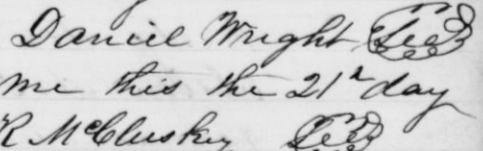 Daniel Wright Seal
me this the 21st day
R McCluskey Seal